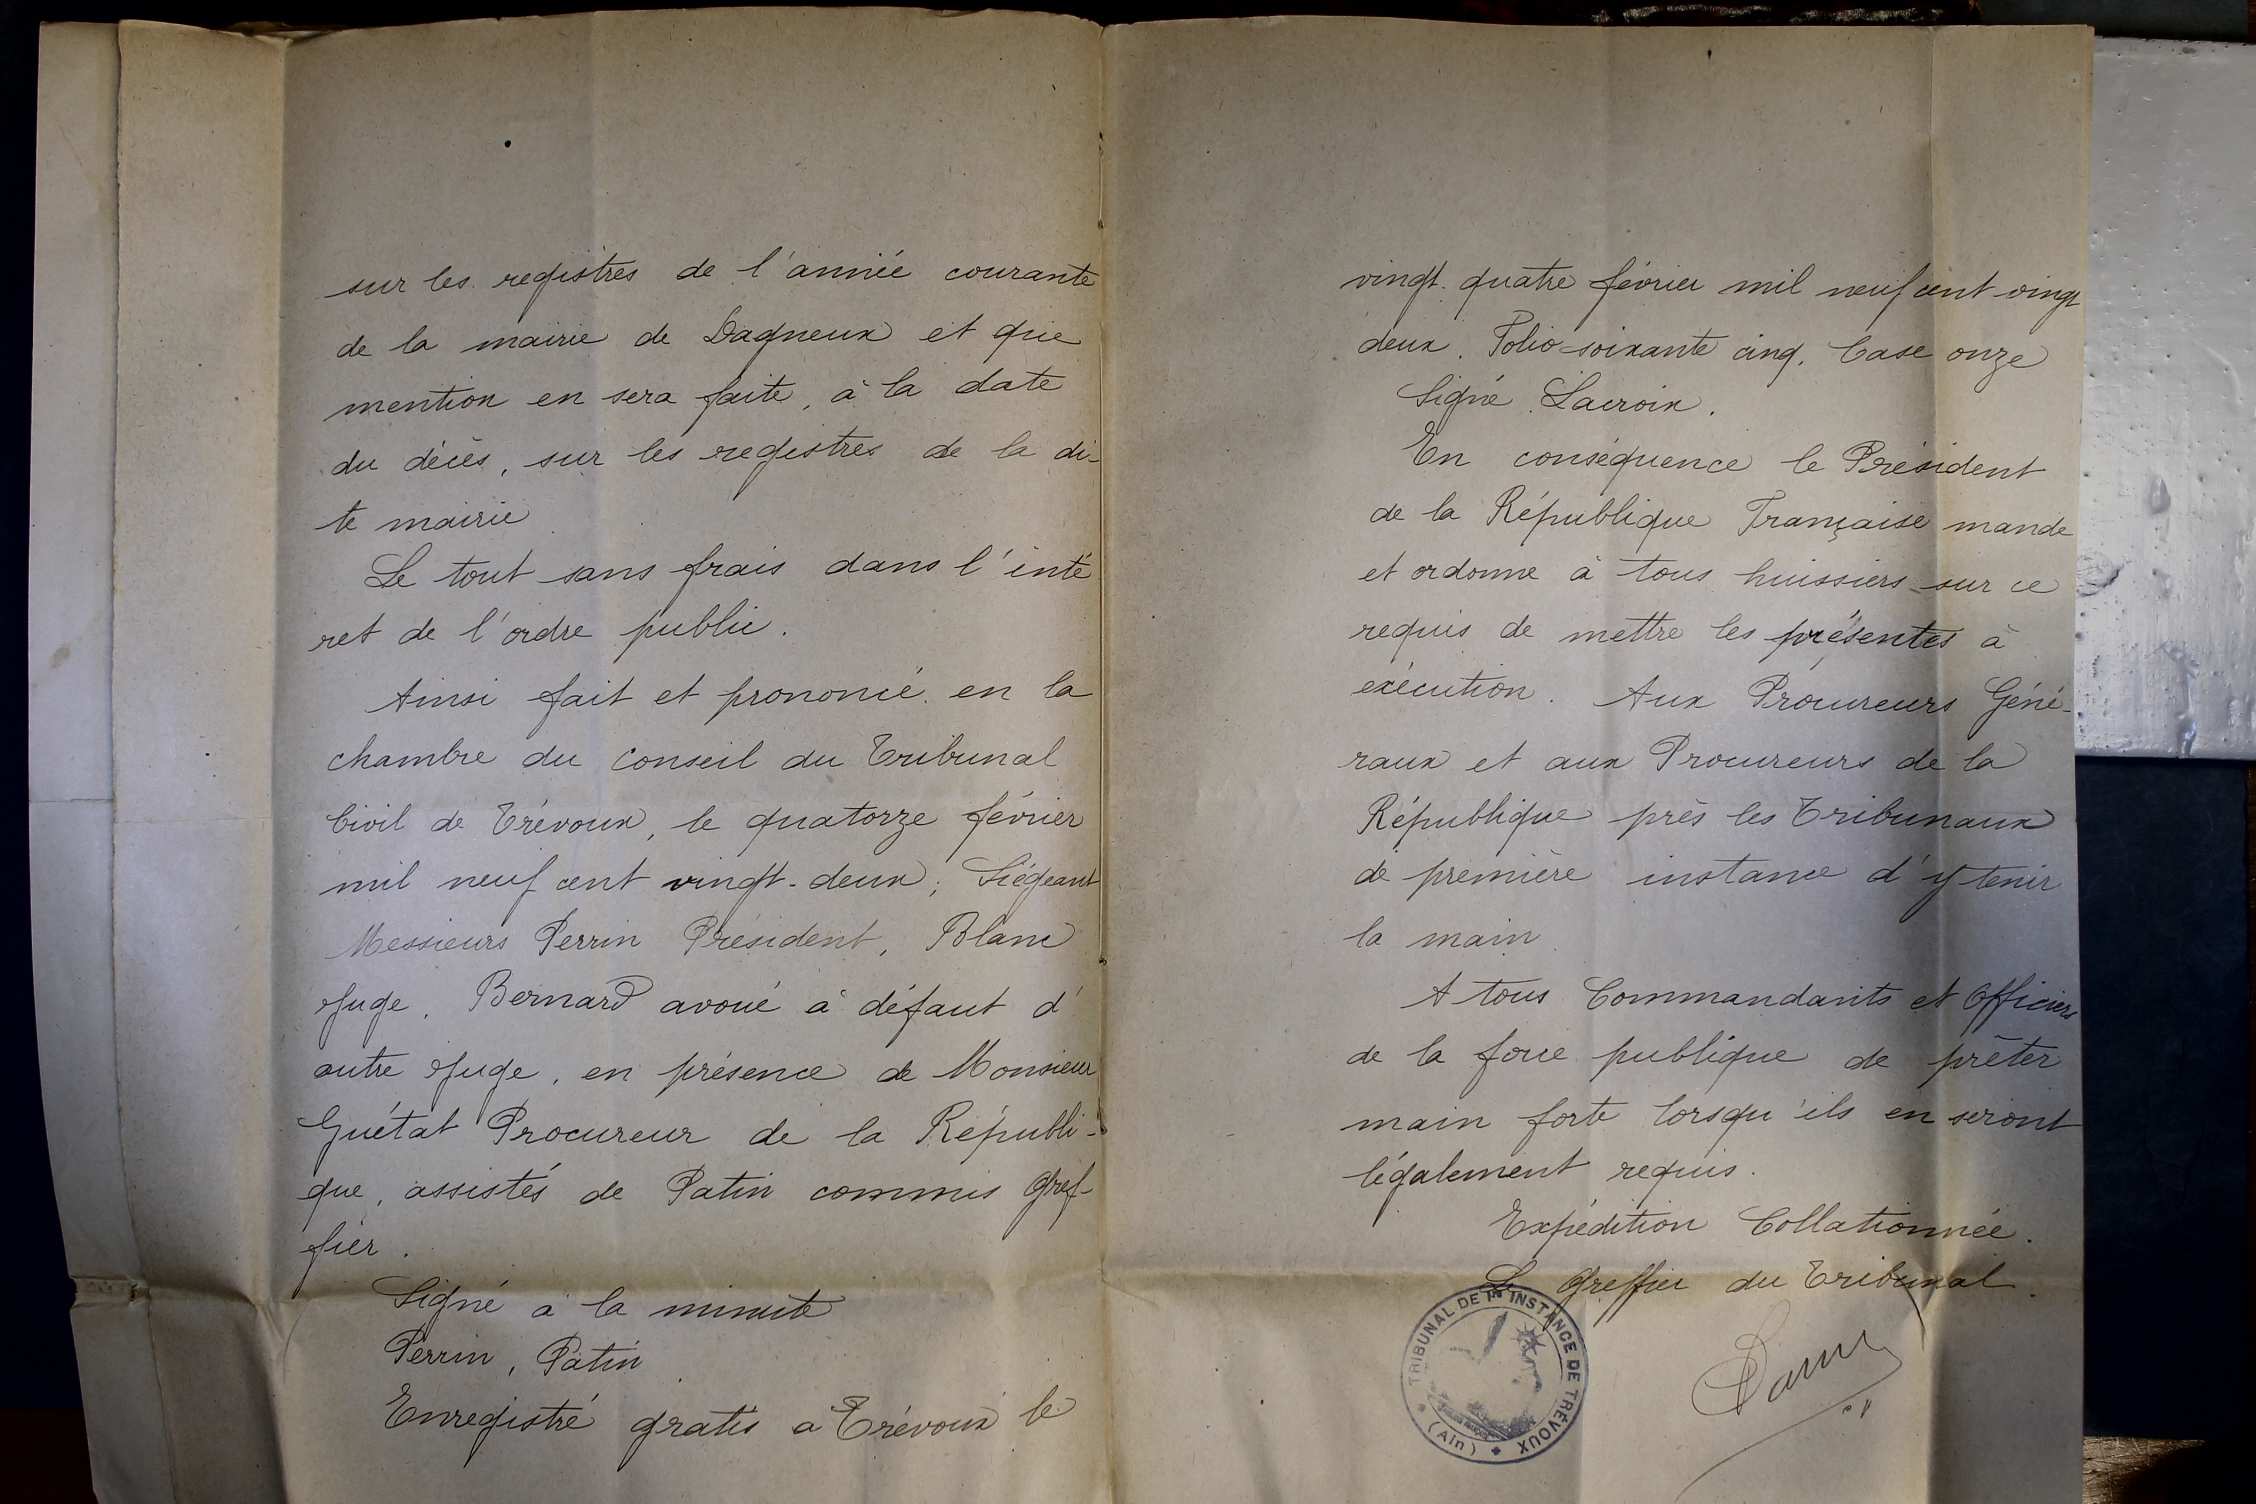 sur les registres de l'année courante
de la mairie de Dagneux et que
mention en sera faite, à la date
du décès, sur les registres de la di-
te mairie
Le tout sans frais dans l'inté
ret de l'ordre public.
Ainsi fait et prononcé en la
chambre du conseil du Tribunal
Civil de Trévoux, le quatorze février
mil neuf cent vingt-deux; Siégeant
Messieurs Perrin Président, Blanc
Juge, Bernard avoué à défaut d'
autre Juge, en présence de Monsieur
Guétat Procureur de la Républi-
que, assistés de Patin commis Gref-
fier.
Signé à la minute
Perrin, Patin
Enregistré gratis à Trévoux le
vingt-quatre février mil neuf cent vingt
deux. Folio soixante cinq, Case onze
Signé Lacroix.
En conséquence le Président
de la République Française mande
et ordonne à tous huissiers sur ce
requis de mettre les présentes à
exécution. Aux Procureurs Géné-
raux et aux Procureurs de la
République près les Tribunaux
de première instance d'y tenir
la main
A tous Commandants et Officiers
de la force publique de prêter
main forte lorsqu'ils en seront
légalement requis.
Expédition Collationnée.
Le Greffier du Tribunal.
TRIBUNAL DE 1re INSTANCE DE TRÉVOUX
(Ain)